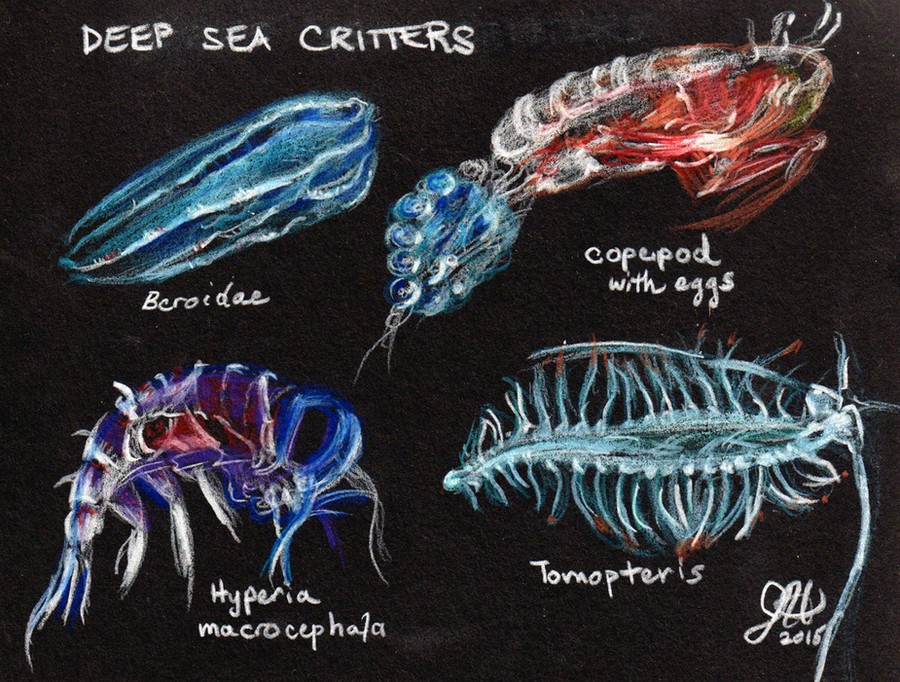 DEEP SEA CRITTERS
Beroidae
copepod
with eggs
Hyperia
macrocephala
Tomopteris
2015